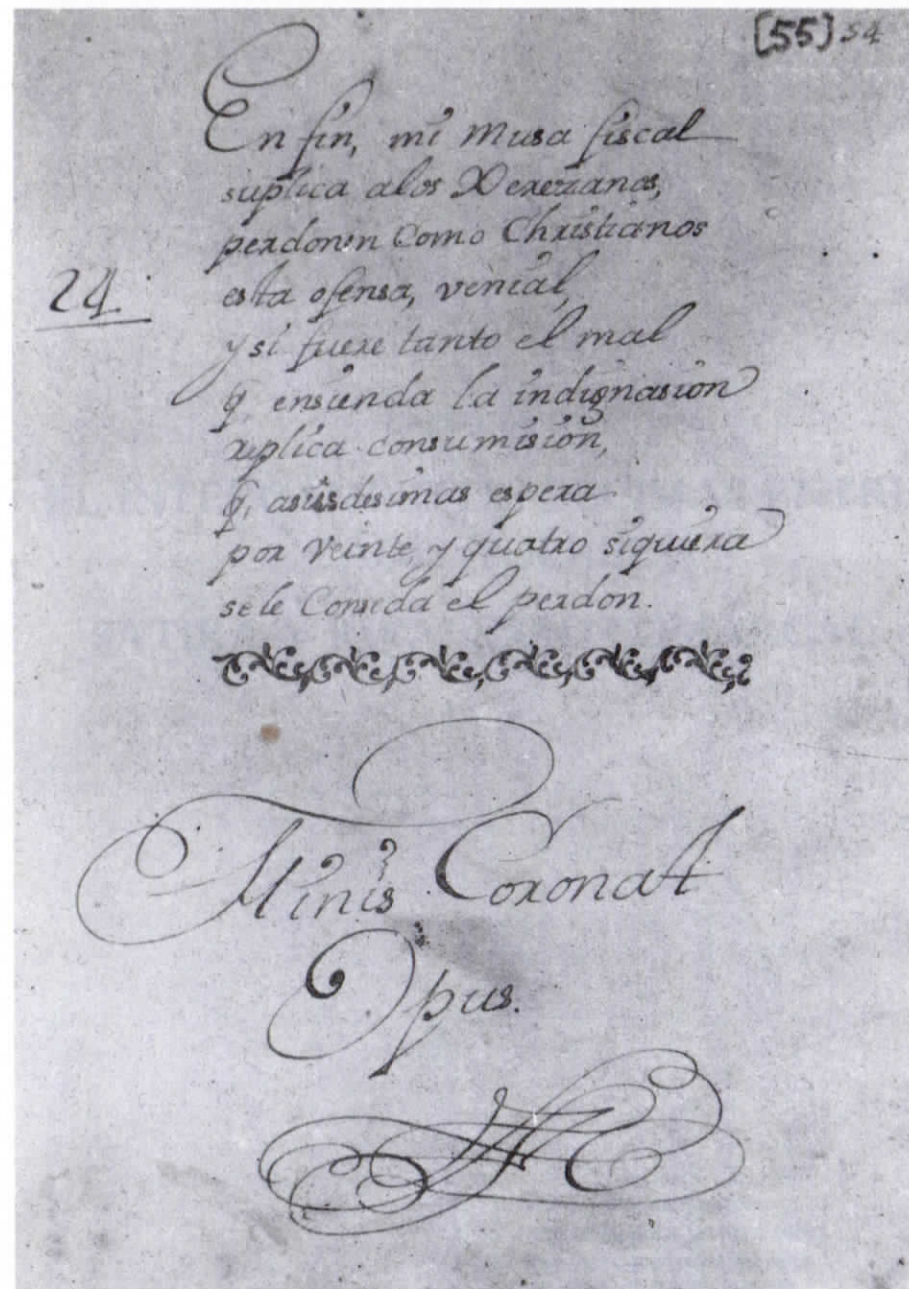 [55) 54
En fin, mi Musa fiscal
suplica alos Xerezanos,
perdonen Como Christianos
esta ofensa, venial,
24
y si fuere tanto el mal
q, ensienda la indignasion
replica consumisión,
q, asiisdesimas espera
por Veinte, y quatro siquiera
sele Conseda el perdon.
Finis Coronat
Opus.